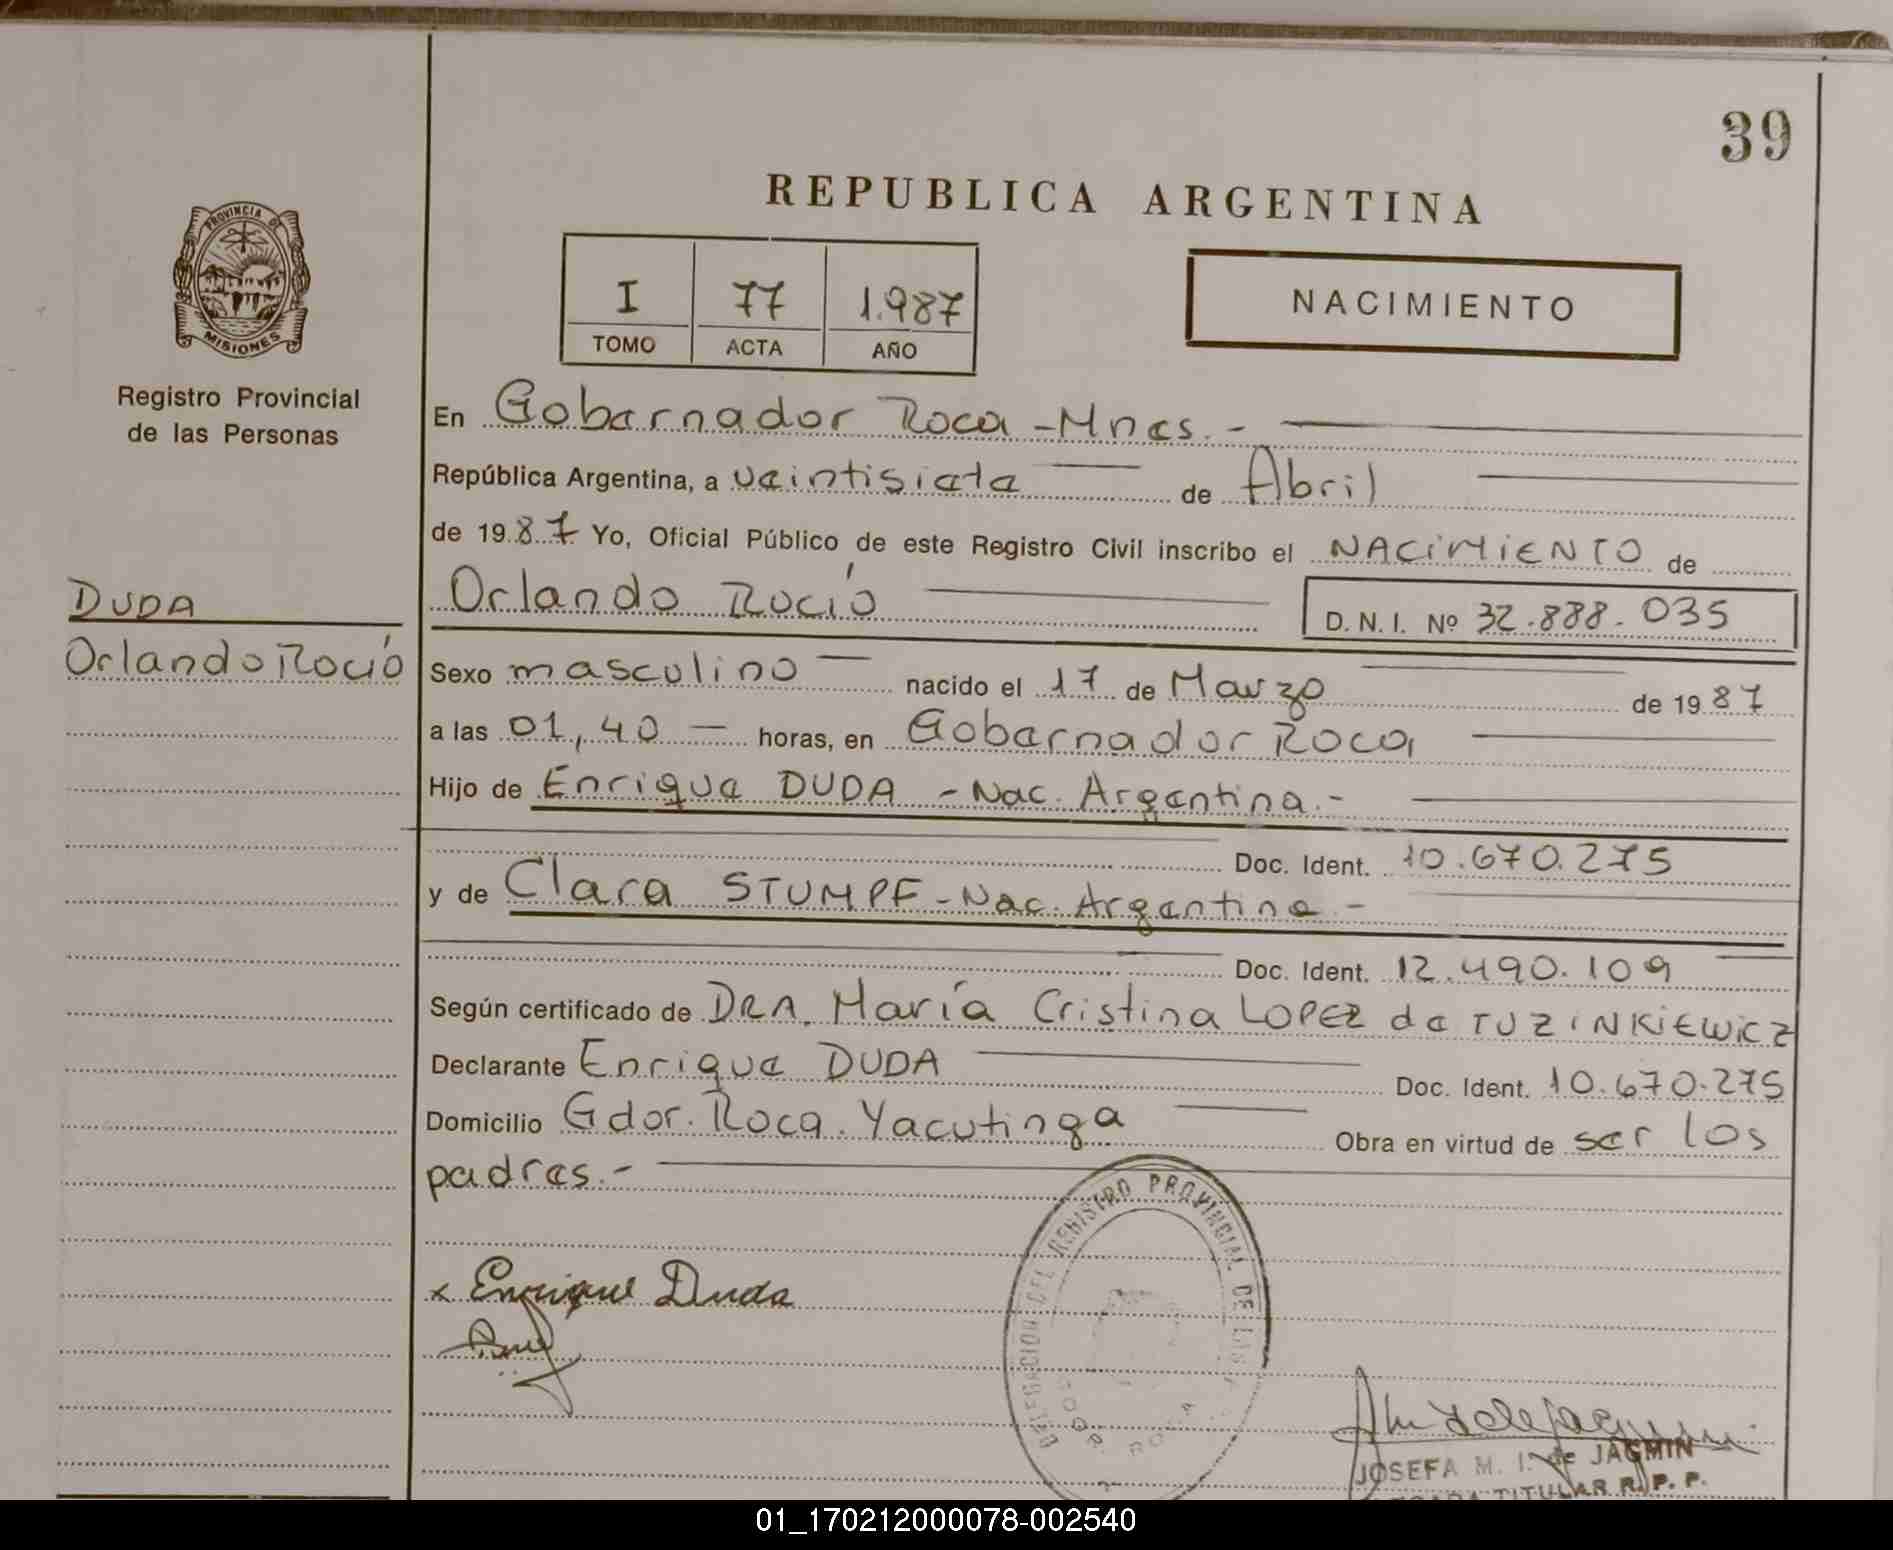 39
REPUBLICA ARGENTINA
PROVINCIA DE
MISIONES
Registro Provincial
de las Personas
I 77 1.987
TOMO ACTA AÑO
NACIMIENTO
En Gobernador Roca - Mnes. -
República Argentina, a veintisiete de Abril
de 1987 Yo, Oficial Público de este Registro Civil inscribo el NACIMIENTO de
Orlando Roció
D. N. I. Nº 32.888.035
DUDA
Orlando Roció
Sexo masculino nacido el 17 de Marzo de 1987
a las 01,40 - horas, en Gobernador Roca
Hijo de Enrique DUDA - Nac. Argentina. -
Doc. Ident. 10.670.275
y de Clara STUMPF - Nac. Argentina -
Doc. Ident. 12.490.109
Según certificado de DRA. María Cristina LOPEZ de TUZINKIEWICZ
Declarante Enrique DUDA Doc. Ident. 10.670.275
Domicilio Gdor. Roca. Yacutinga Obra en virtud de ser los
padres. -
x Enrique Duda
DELEGACION DEL REGISTRO PROVINCIAL DE LAS
GDOR. ROCA
JOSEFA M. I. de JAGMIN
TITULAR R. P. P.
01_170212000078-002540